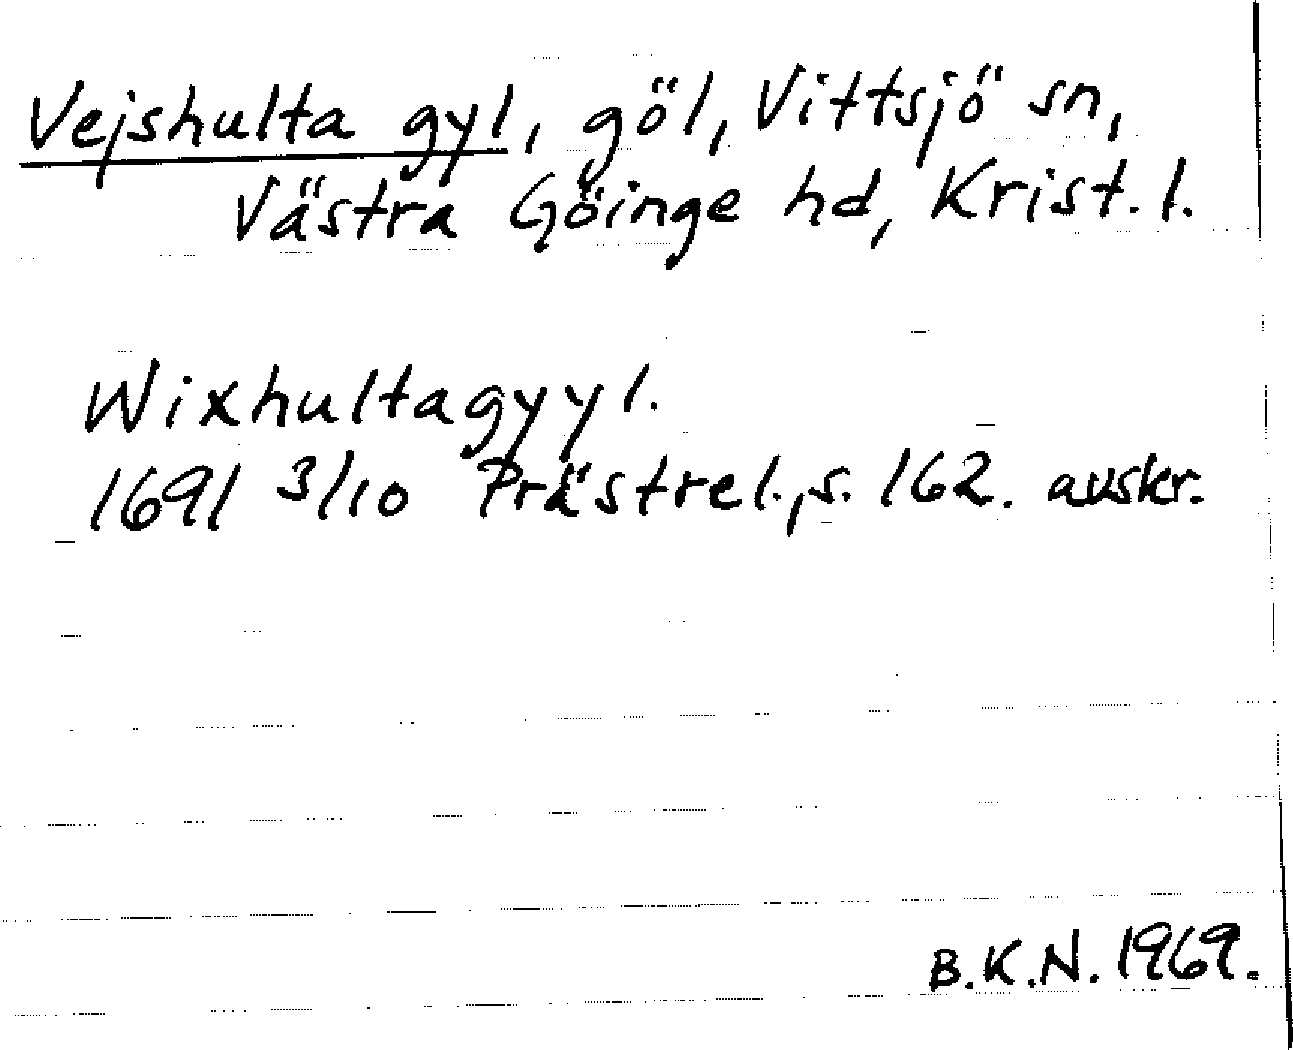 Vejshulta gyl, göl, Vittsjö sn,
Västra Göinge hd, Krist. l.
Wixhultagyyl.
1691 3/10 Prästrel., s. 162. avskr.
B.K.N. 1969.